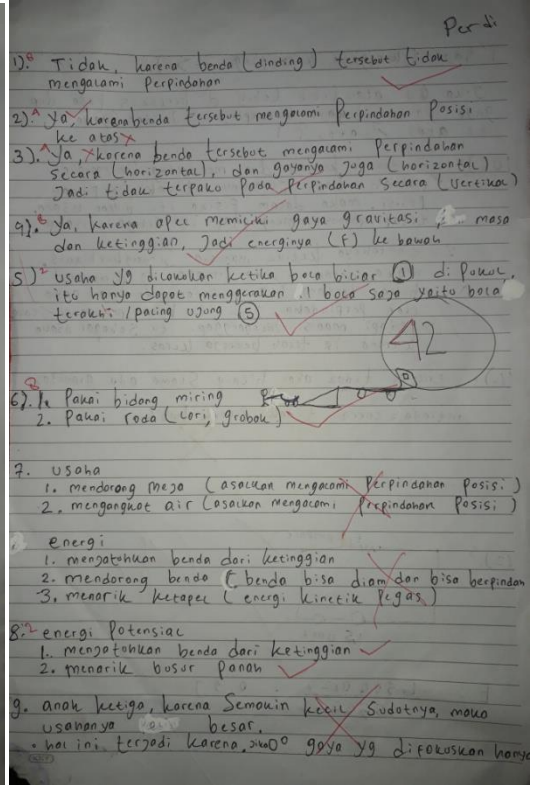 Perdi
1). 8 Tidak, karena benda (dinding) tersebut tidak
mengalami Perpindahan
2). 4 Ya, karena benda tersebut mengalami Perpindahan Posisi
ke atas
3). 4 Ya, karena benda tersebut mengalami Perpindahan
secara (horizontal), dan gayanya Juga (horizontal)
Jadi tidak terpaku Pada Perpindahan secara (vertikal)
4). 8 Ya, karena apel memiliki gaya gravitasi, masa
dan ketinggian, Jadi energinya (F) ke bawah
5) 2 usaha yg dilakukan ketika bola biliar 1 di Pukul,
itu hanya dapat menggerakan 1 bola saja yaitu bola
terakhir / paling ujung 5
42
6). 8 1. Pakai bidang miring
2. Pakai roda (Lori, grobak)
7. usaha
1. mendorong meja (asalkan mengalami Perpindahan Posisi)
2. mengangkat air (asalkan mengalami Perpindahan Posisi)
energi
1. menjatuhkan benda dari ketinggian
2. mendorong benda (benda bisa diam dan bisa berpindah
3. menarik ketapel (energi kinetik Pegas)
8. 2 energi Potensial
1. menjatuhkan benda dari ketinggian
2. menarik busur Panah
9. anak ketiga, karena Semakin kecil Sudotnya, maka
usahanya besar.
• hal ini terjadi karena, jika 0° gaya yg difokuskan hanya